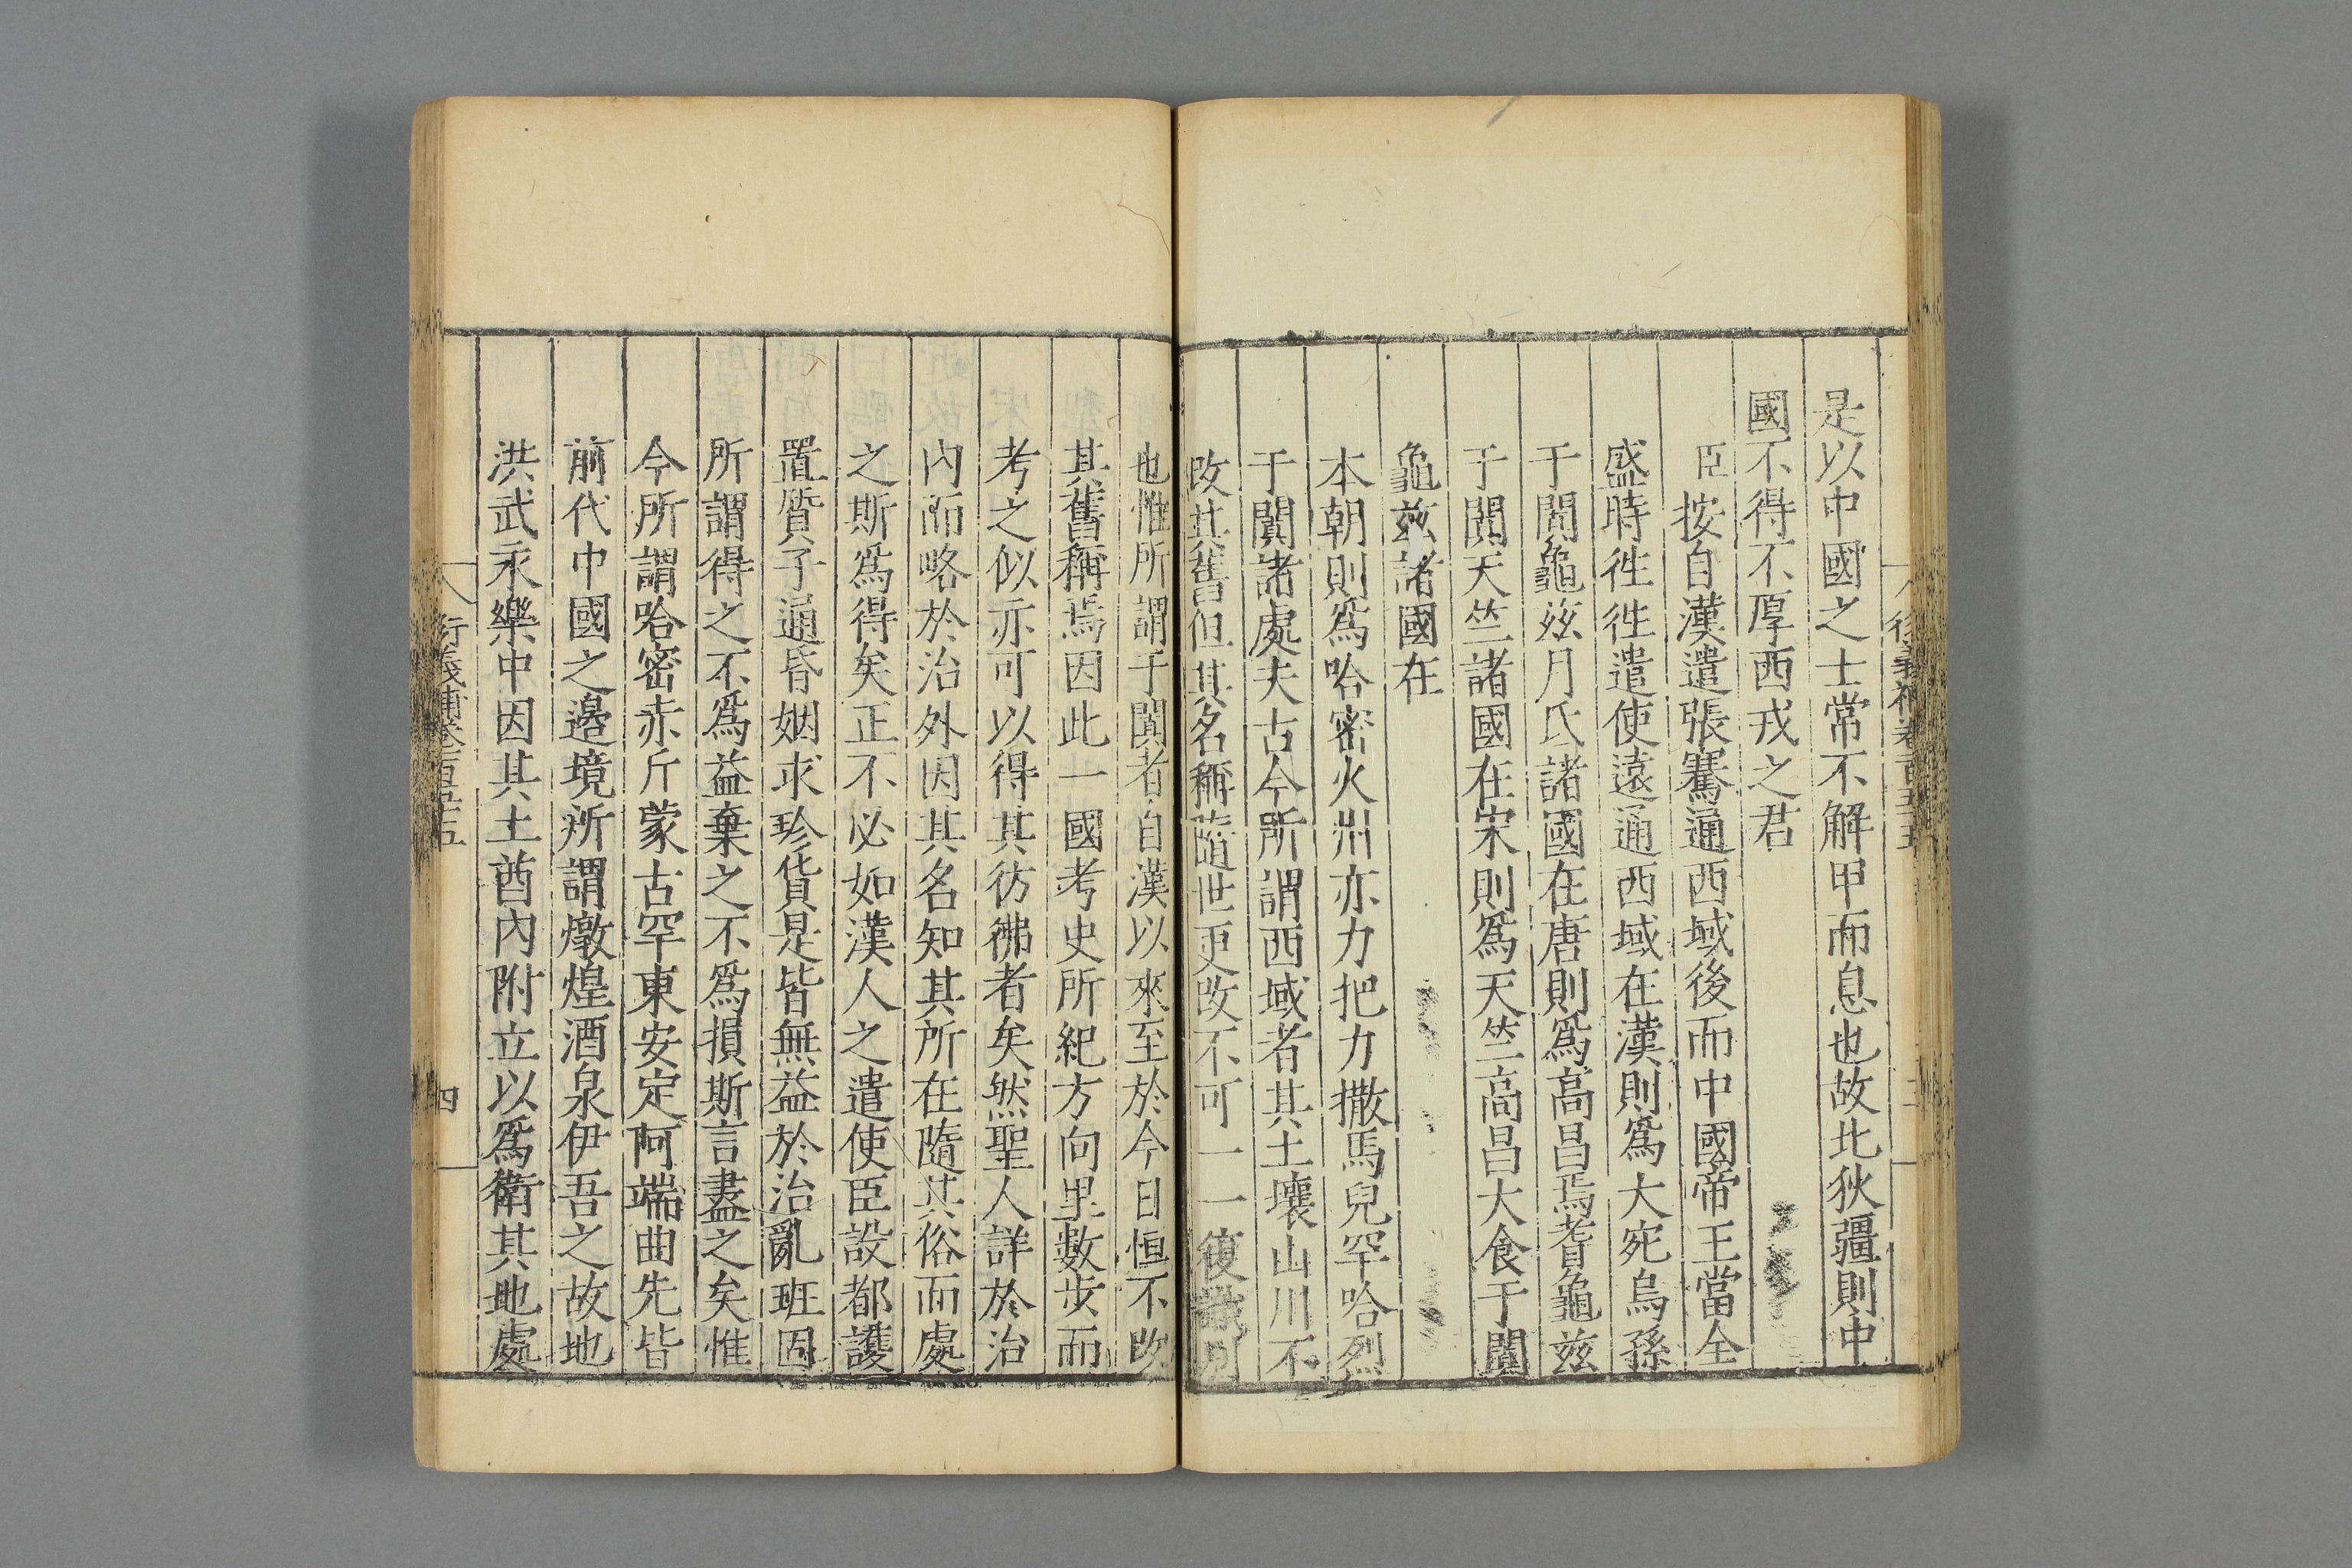 是以中國之士常不解甲而息也故北狄疆則中
國不得不厚西戎之君
臣按自漢遣張騫通西域後而中國帝王當全
盛時徃徃遣使遠通西域在漢則爲大宛烏孫
于闐龜兹月氏諸國在唐則爲高昌焉耆龜兹
于闐天竺諸國在宋則爲天竺高昌大食于闐
龜兹諸國在
本朝則爲哈密火州亦力把力撒馬兒罕哈烈
于闐諸處夫古今所謂西域者其土壤山川不
改其舊但其名稱隨世更改不可一一復識別
也惟所謂于闐者自漢以來至於今日恒不改
其舊稱焉因此一國考史所紀方向里數步而
考之似亦可以得其彷彿者矣然聖人詳於治
內而略於治外因其名知其所在隨其俗而處
之斯爲得矣正不必如漢人之遣使臣設都護
置質子通昏姻求珍貨是皆無益於治亂班固
所謂得之不爲益棄之不爲損斯言盡之矣惟
今所謂哈密赤斤蒙古罕東安定阿端曲先皆
前代中國之邊境所謂燉煌酒泉伊吾之故地
洪武永樂中因其土酋內附立以爲衛其地處
衍義補卷一百五十五
四